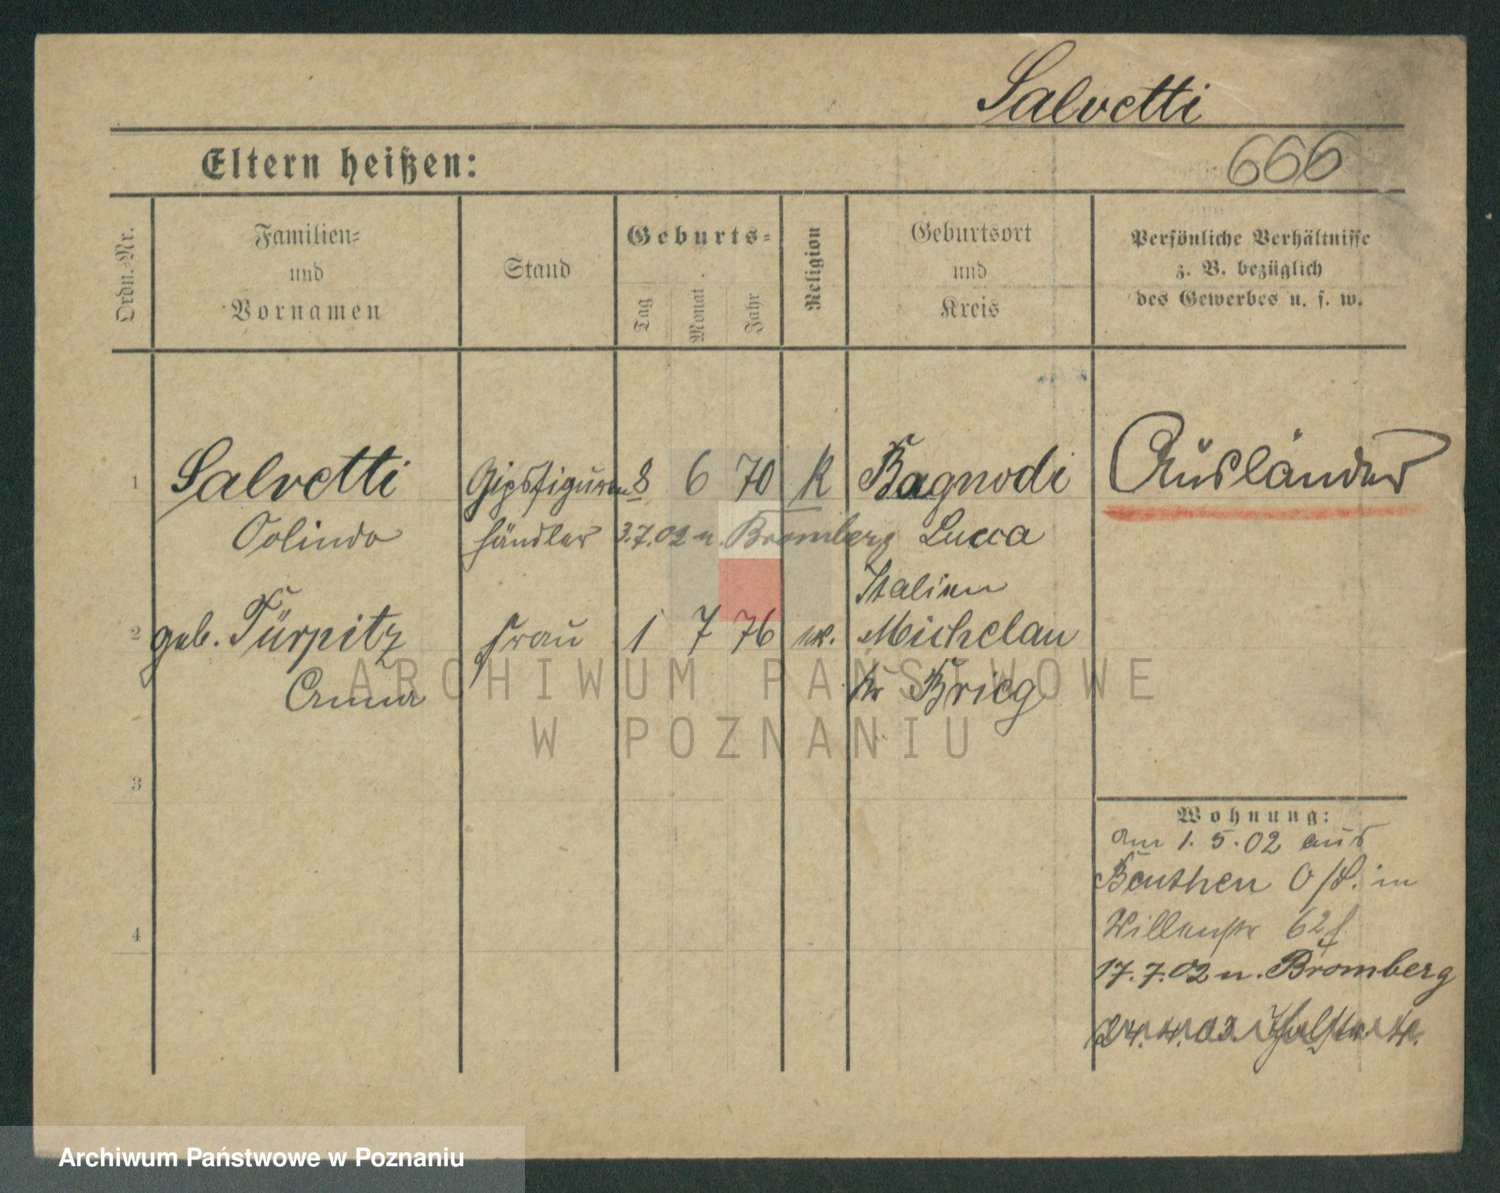 Salvetti
Eltern heißen:
666
Ordn.-Nr.
Familien-
und
Vornamen
Stand
Geburts-
Tag
Monat
Jahr
Religion
Geburtsort
und
Kreis
Persönliche Verhältnisse
z. B. bezüglich
des Gewerbes u. s. w.
1 Salvetti Gipsfiguren 8 6 70 K Bagnodi Ausländer
Oolindo händler 3.7.02 n. Bromberg Lucca
Italien
2 geb. Türpitz Frau 1 7 76 ev. Michelau
Anna Kr Brieg
ARCHIWUM PAŃSTWOWE
W POZNANIU
3
Wohnung:
am 1. 5. 02 aus
Beuthen O/S. in
62
4
17. 7. 02 n. Bromberg
24. 4. 03.
Archiwum Państwowe w Poznaniu